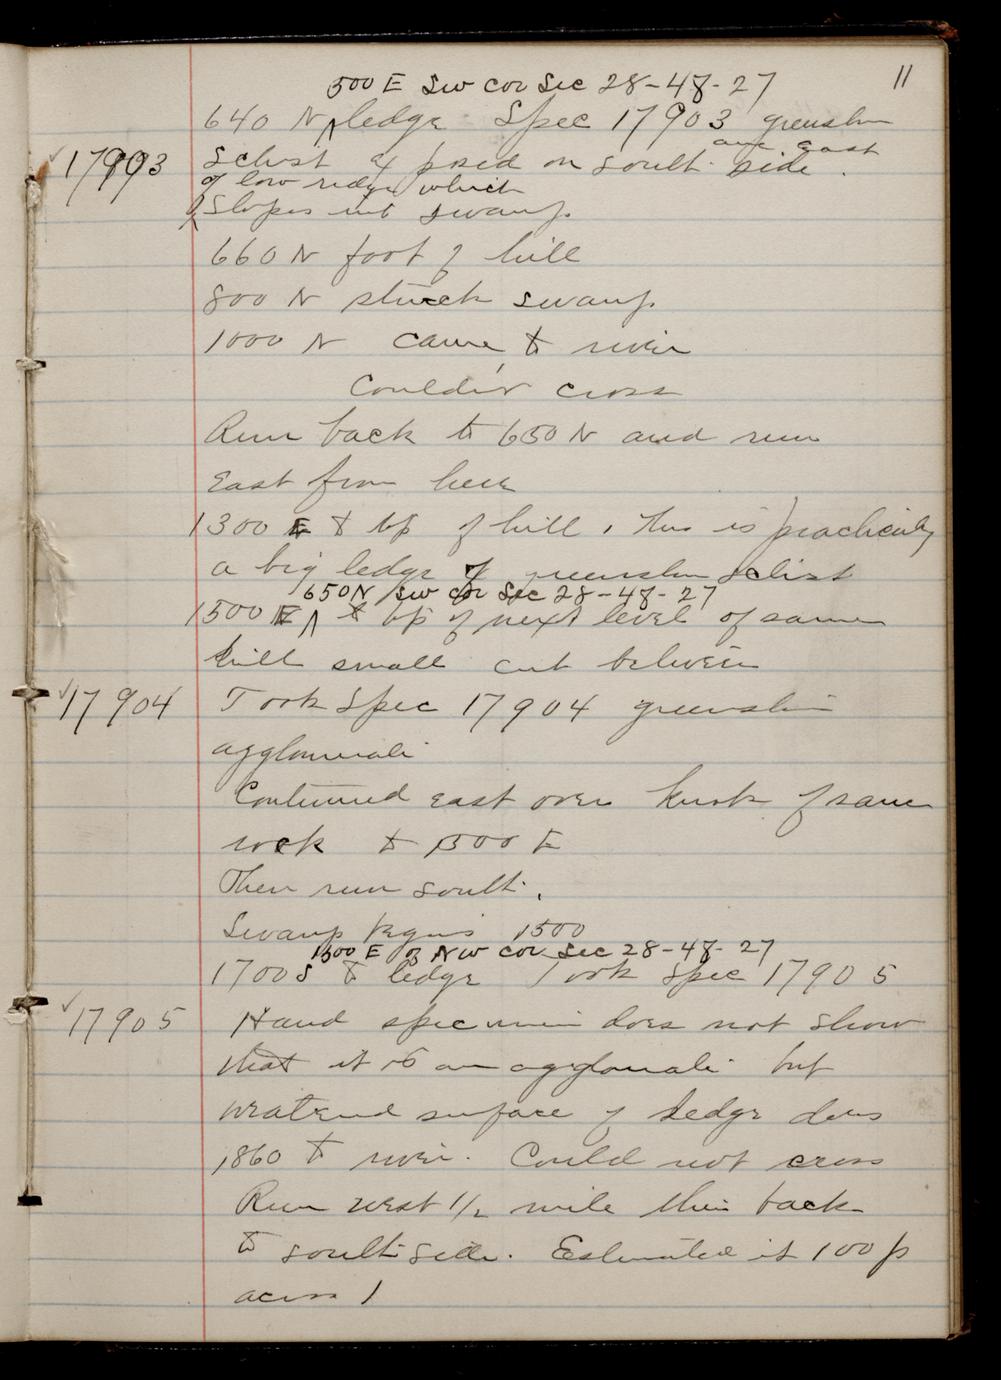 11
500 E SW cor Sec 28-48-27
640 N ^ ledge Spec 17903 greenston
and east
17903 schist exposed on south side.
of low ridge which
^ slopes into swamp
660 N foot of hill
800 N struck swamp
1000 N came to river
Couldn't cross
Run back to 650 N and run
East from here
1300 E to top of hill. This is practically
a big ledge of greenston schist
650 N SW cor Sec 28-48-27
1500 E ^ to top of next level of same
hill small cut between
17904 Took Spec 17904 greenston
agglomerate
Continued east over knob of same
rock to 1500 E
Then run south.
Swamp begins 1500
1500 E of NW cor Sec 28-48-27
1700 S to ledge Took Spec 17905
17905 Hand specimen does not show
that it is an agglomerate but
weathered surface of ledge does
1860 to river. Could not cross
Run west 1/2 mile then back
to south side. Estimated it 100 p
across